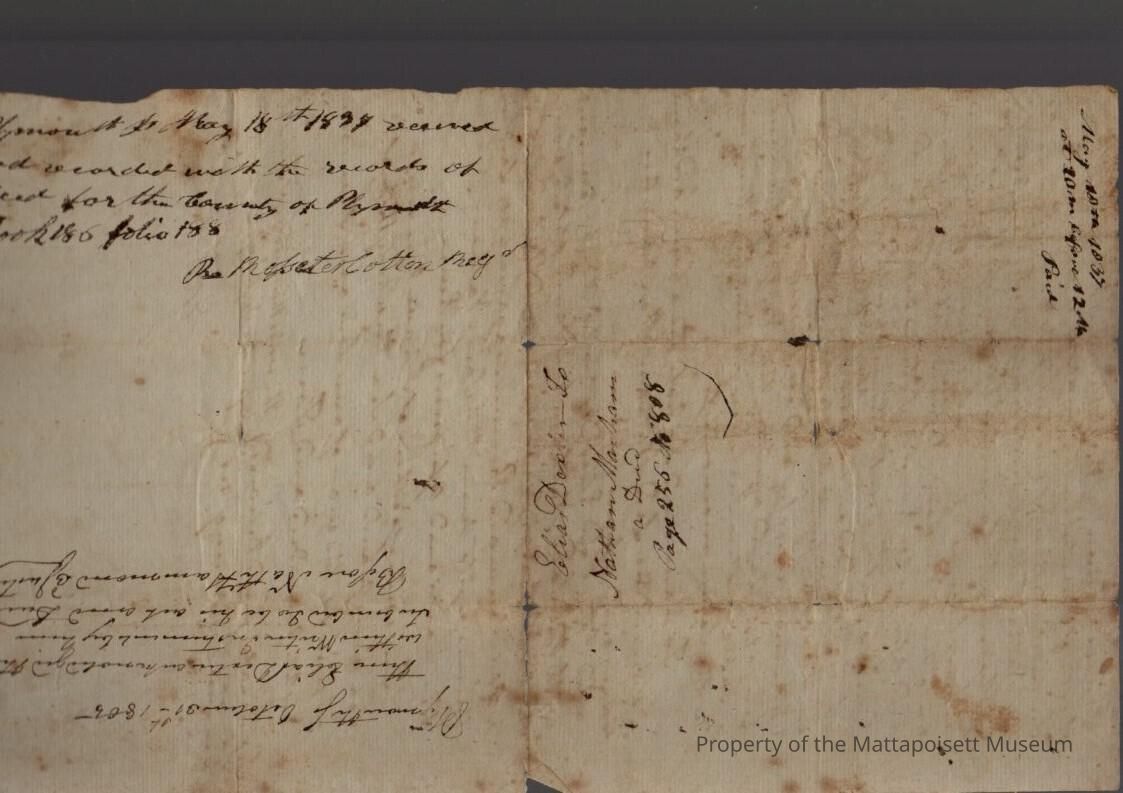 ymouth ss May 18th 1837 receved
d recorded with the records of
eed for the County of Plymouth
ook 186 folio 188
Rosseter Cotton Regr
May 10th 1837
at 10 m before 12 M
Paid
Elias Dexter To
Nathan Marham
a Deed
Page 256 N 808
Plymouth ss October 31st 1805
then Elias Dexter acknowledged th
within Writen instrument by him
to be his act and Deed
Before Nath Hammond
Property of the Mattapoisett Museum